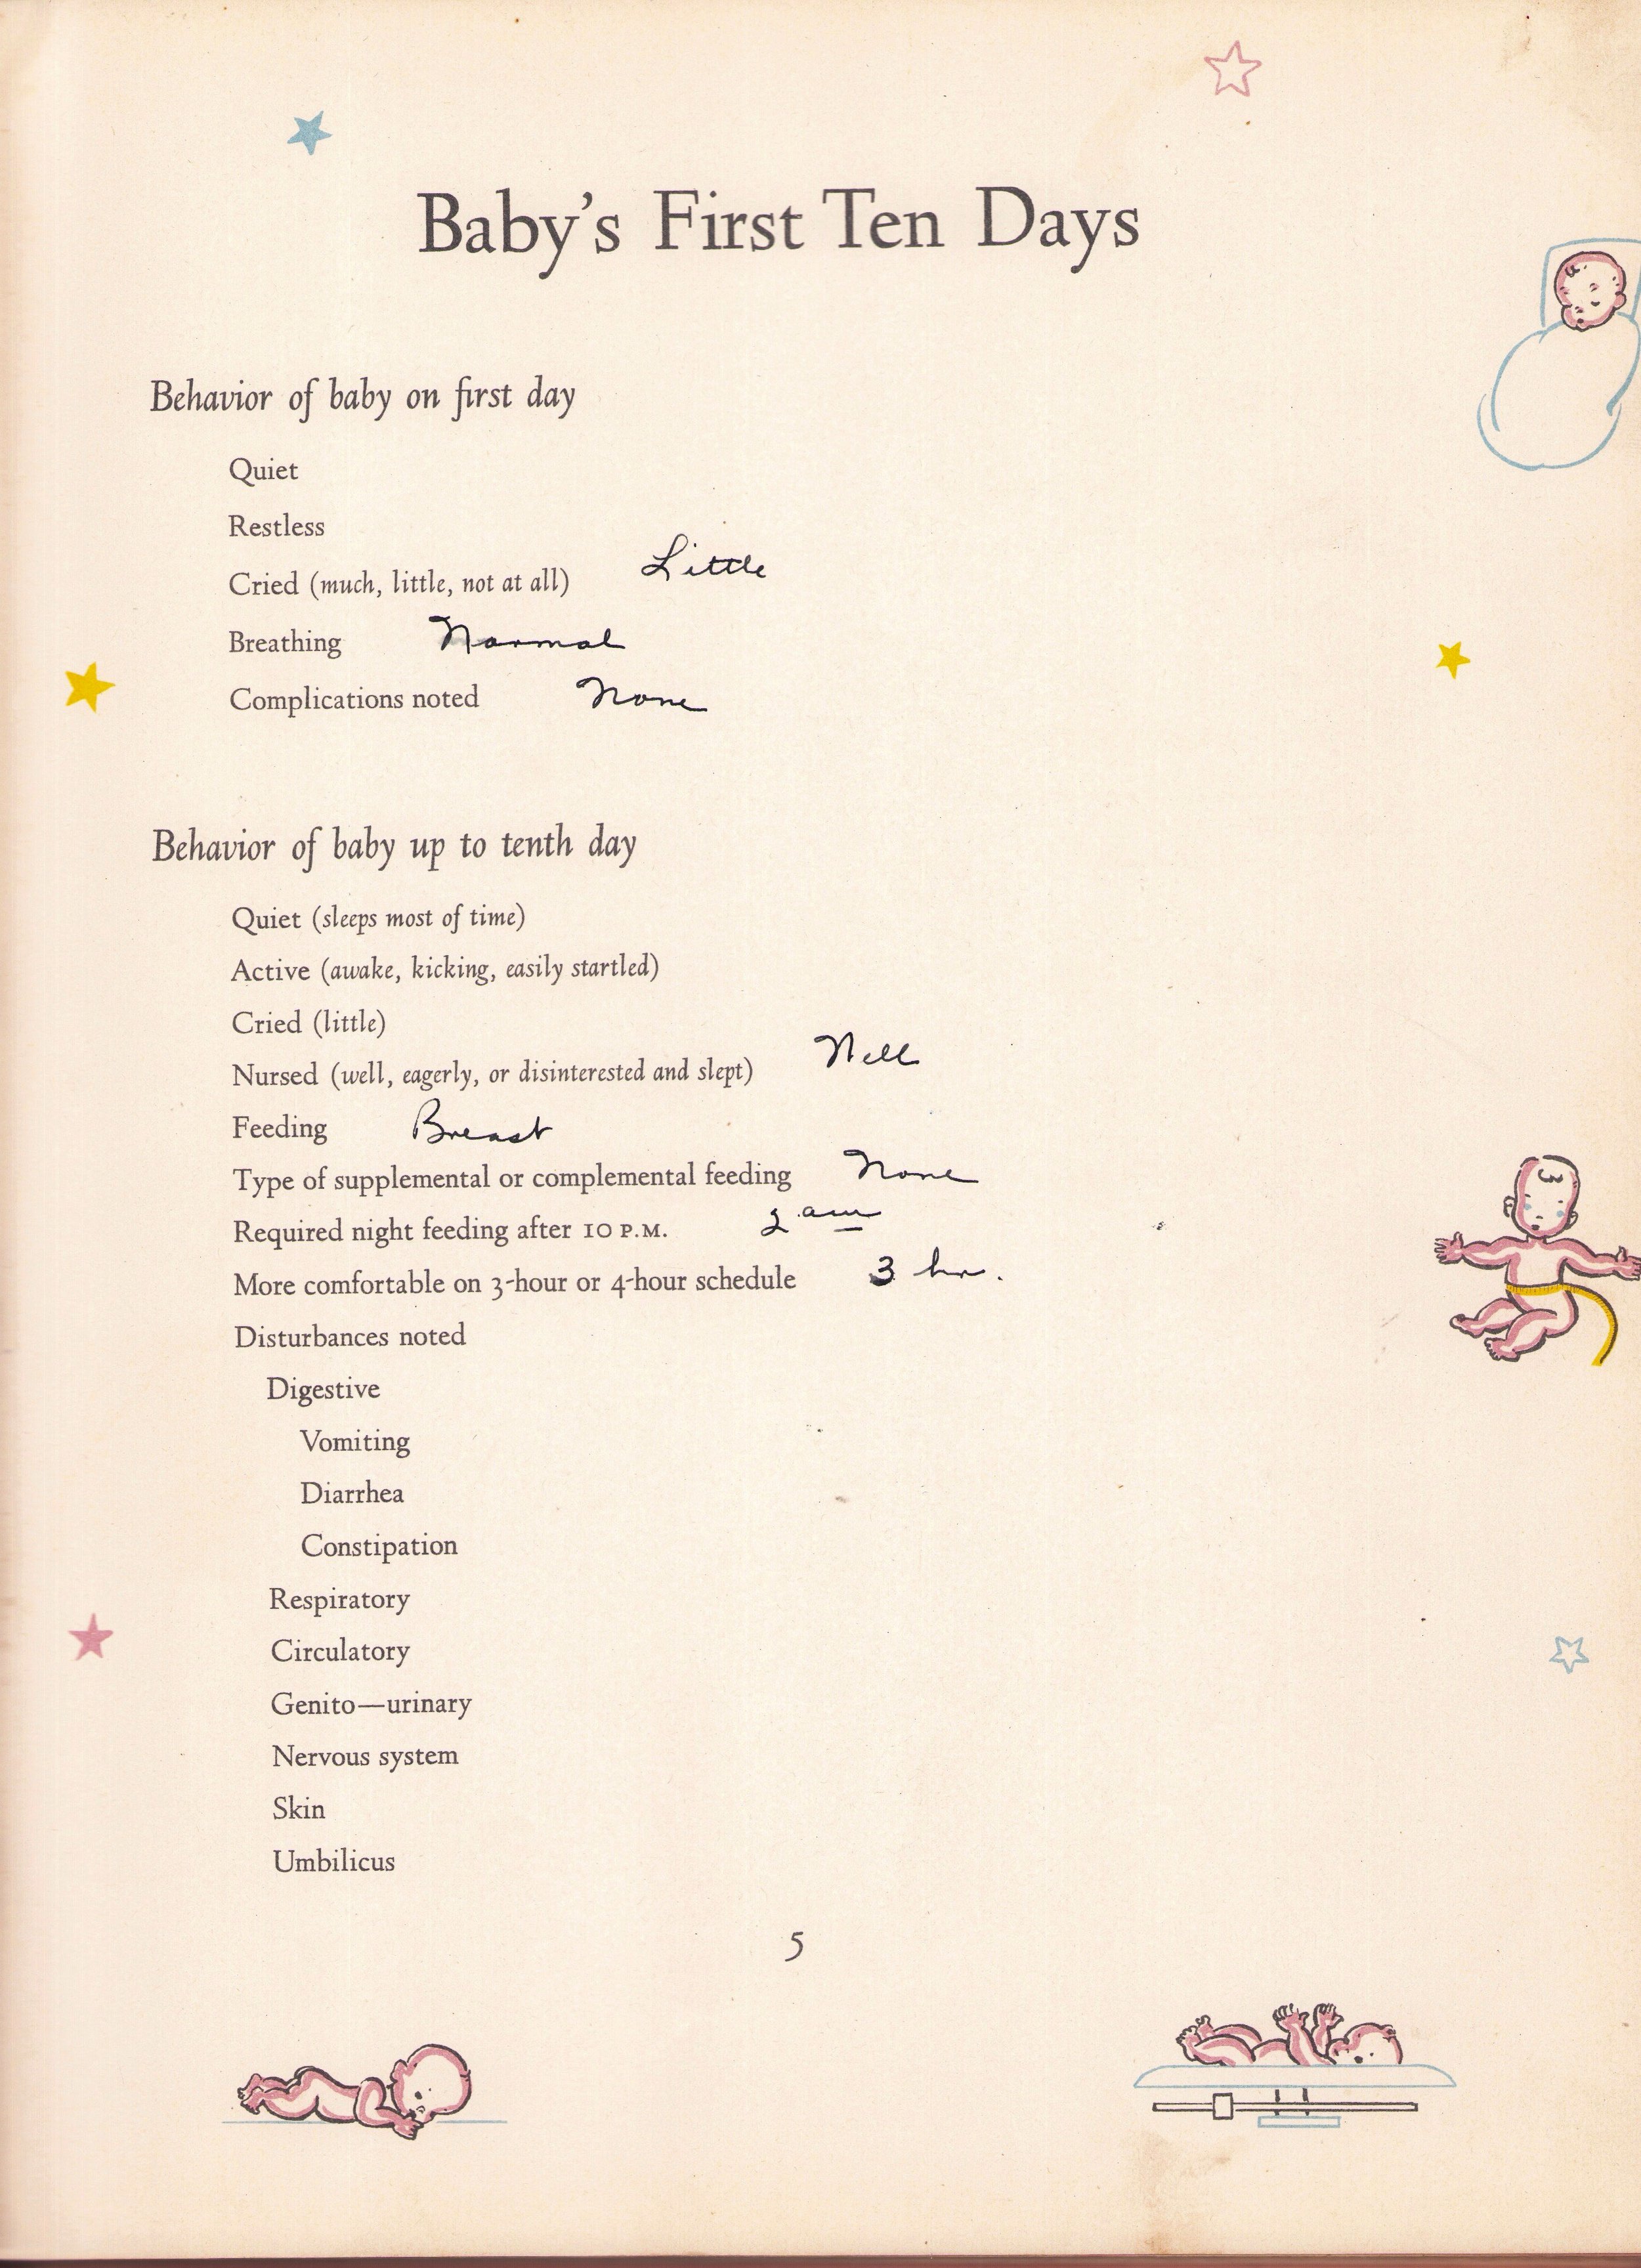 Baby's First Ten Days
Behavior of baby on first day
Quiet
Restless
Cried (much, little, not at all) Little
Breathing Normal
Complications noted None
Behavior of baby up to tenth day
Quiet (sleeps most of time)
Active (awake, kicking, easily startled)
Cried (little)
Nursed (well, eagerly, or disinterested and slept) Well
Feeding Breast
Type of supplemental or complemental feeding None
Required night feeding after 10 P.M. 2 am
More comfortable on 3-hour or 4-hour schedule 3 hr.
Disturbances noted
Digestive
Vomiting
Diarrhea
Constipation
Respiratory
Circulatory
Genito—urinary
Nervous system
Skin
Umbilicus
5